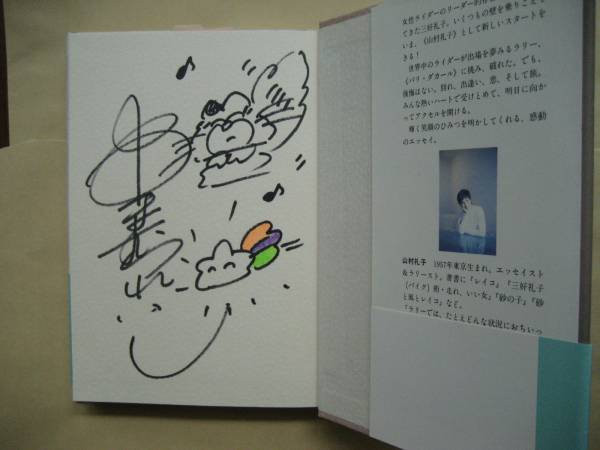 女性ライダーのリーダー的存
てきた三好礼子。いくつもの壁を乗りこえて
いま、《山村礼子》として新しいスタートを
きる!
世界中のライダーが出場を夢みるラリー、
《パリ・ダカール》に挑み、破れた。でも、
後悔はない。別れ、出逢い、恋、そして旅。
みんな熱いハートで受けとめて、明日に向か
ってアクセルを開ける。
輝く笑顔のひみつを明かしてくれる、感動
のエッセイ。
山村礼子 1957年東京生まれ。エッセイスト
&ラリースト。著書に『レイコ』『三好礼子
(バイク)術・走れ、いい女』『砂の子』『砂
と風とレイコ』など。
「ラリーでは、たとえどんな状況におちいっ